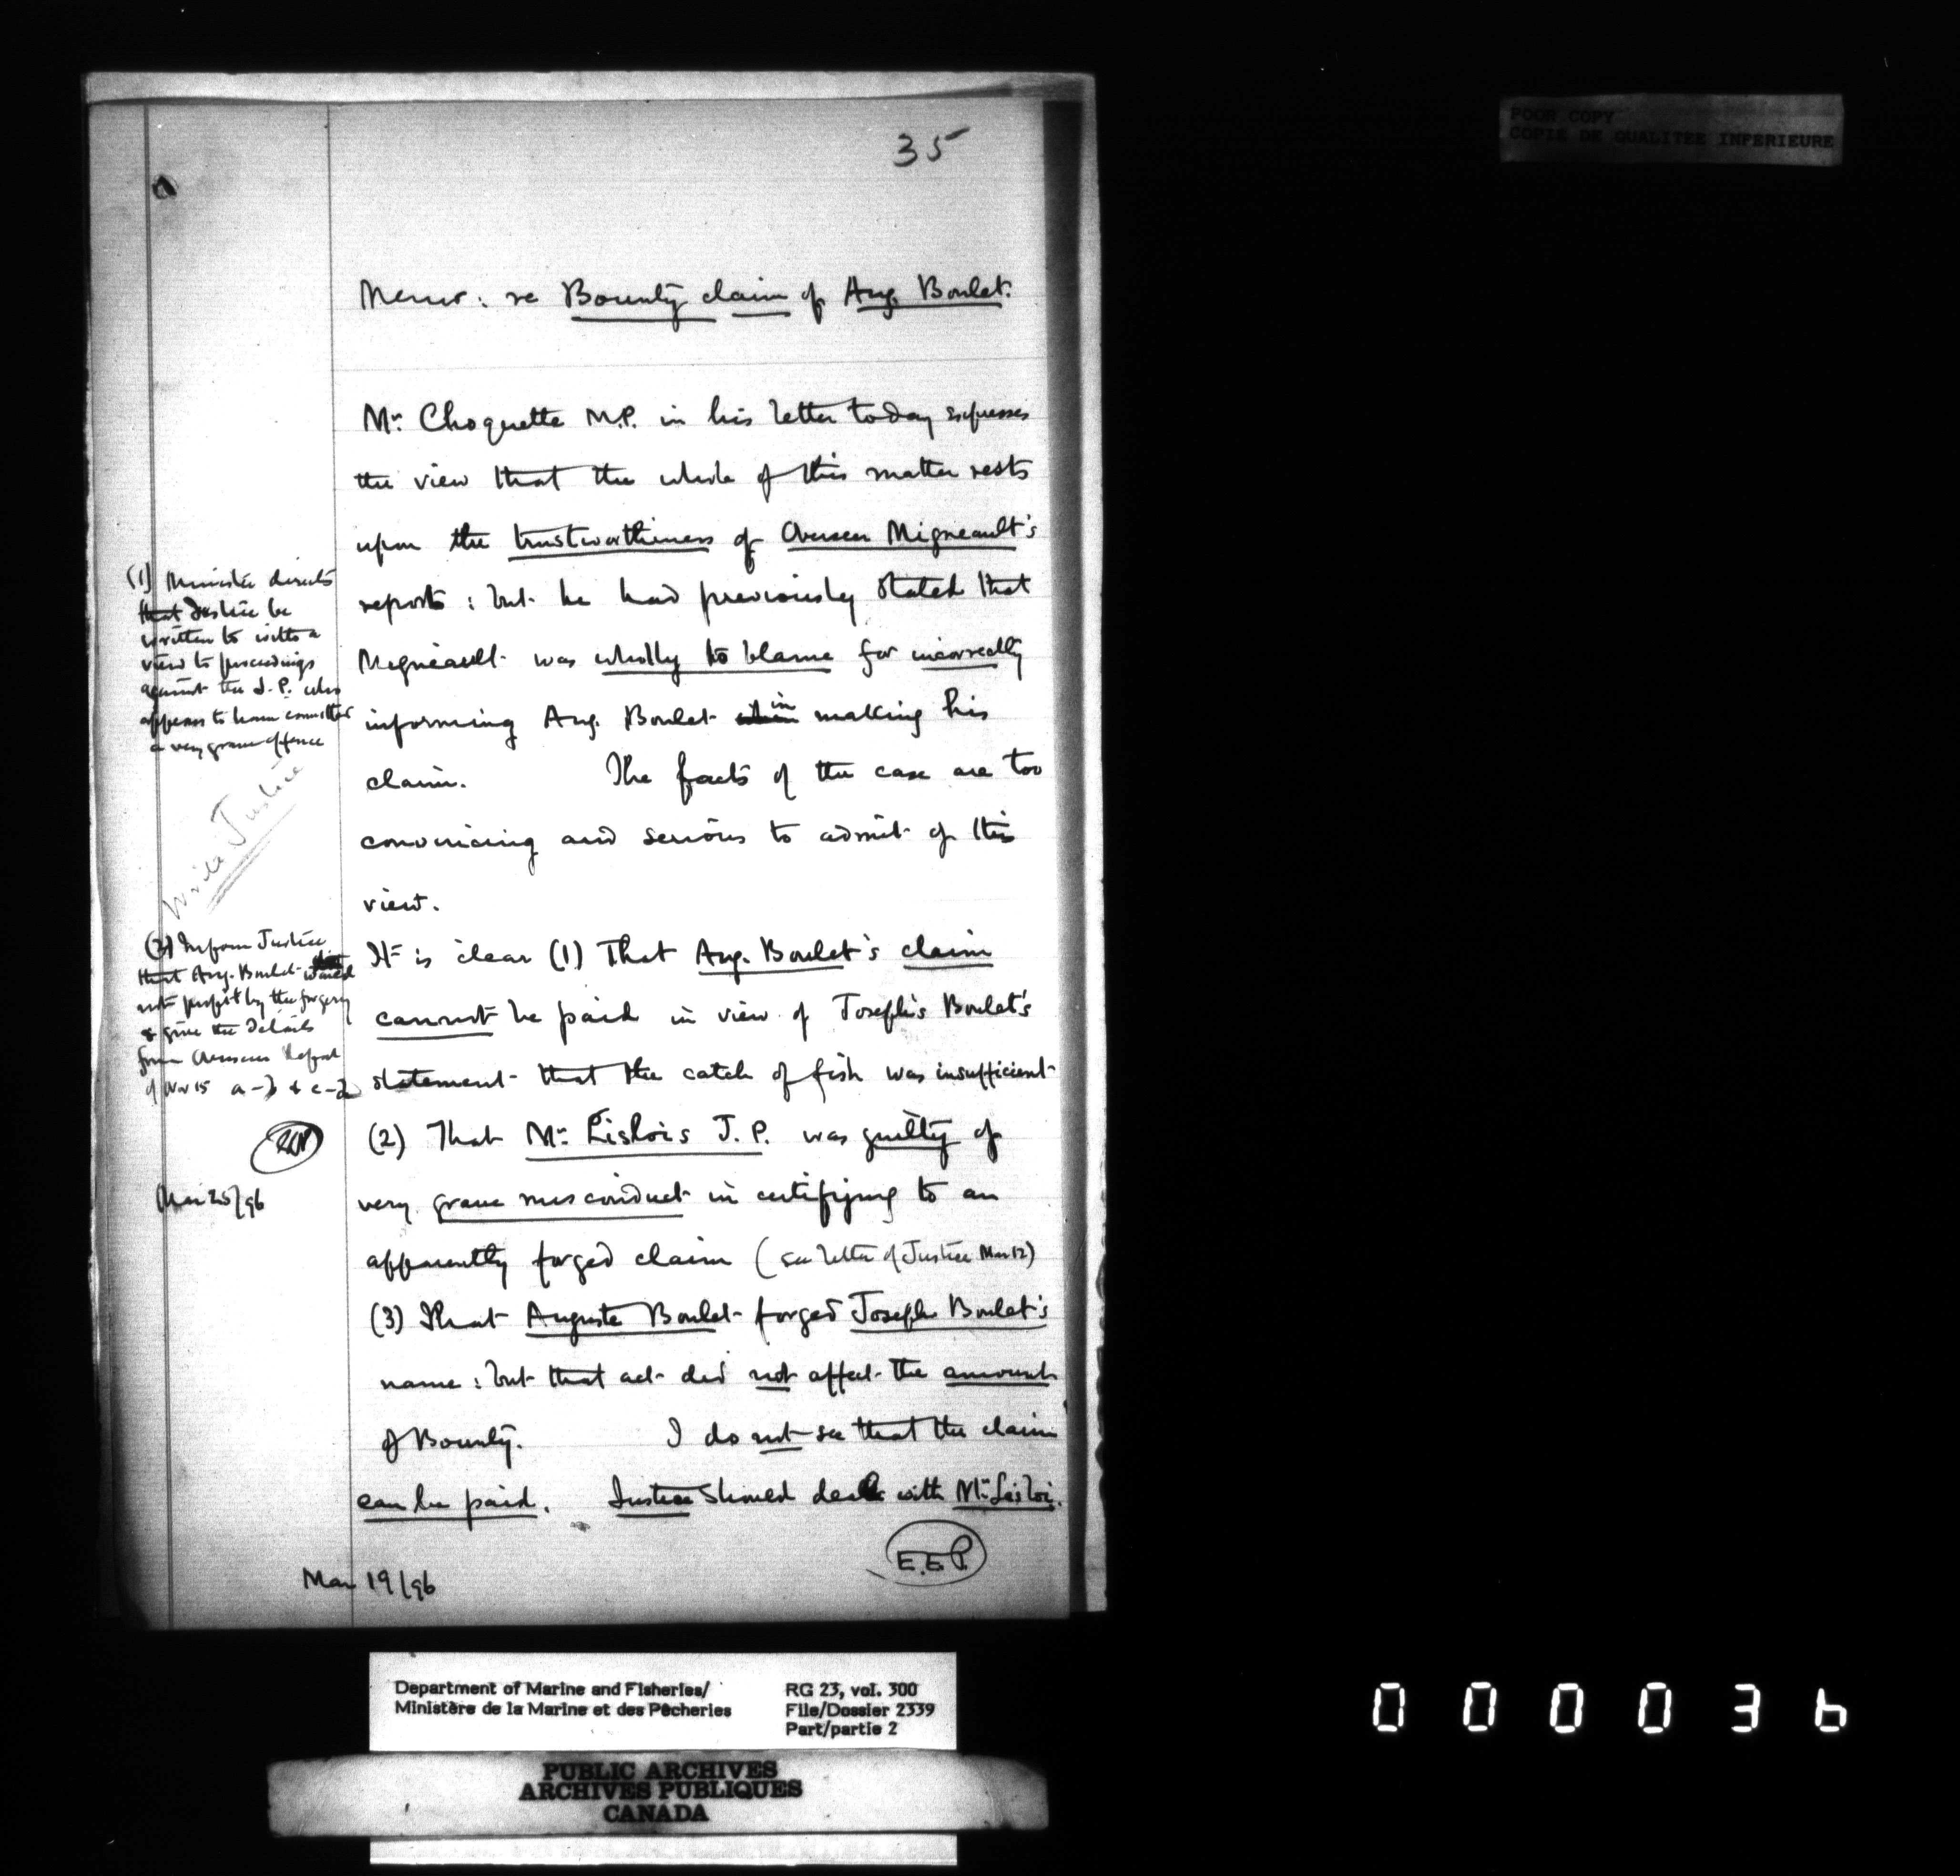 35
Memo: re Bounty claim of Aug. Boulet.
Mr. Choquette M.P. in his letter today expresses
the view that the whole of this matter rests
upon the trustworthiness of Overseer Migneault's
reports: but he had previously stated that
Migneault was wholly to blame for incorrectly
informing Aug. Boulet in making his
claim. The facts of the case are too
convincing and serious to admit of this
view.
It is clear (1) That Aug. Boulet's claim
cannot be paid in view of Joseph's Boulet's
statement that the catch of fish was insufficient
(2) That Mr. Lislois J.P. was guilty of
very grave misconduct in certifying to an
apparently forged claim (see letter of Justice Mar 12)
(3) That Auguste Boulet forged Joseph Boulet's
name: but that act did not affect the amount
of Bounty. I do not see that the claim
can be paid. Justice should deal with Mr. Lislois.
E.E.P.
Mar 19/96
(1) Minister directs
that Justice be
written to with a
view to proceedings
against the J.P. who
appears to have committed
a very grave offence
Write Justice
(2) Inform Justice
that Aug. Boulet would
not profit by the forgery
& give the details
from Overseers Report
of Nov 15 a-b & c-d
Mar 25/96
POOR COPY
COPIE DE QUALITEE INFERIEURE
Department of Marine and Fisheries/
Ministère de la Marine et des Pêcheries
RG 23, vol. 300
File/Dossier 2339
Part/partie 2
PUBLIC ARCHIVES
ARCHIVES PUBLIQUES
CANADA
000036